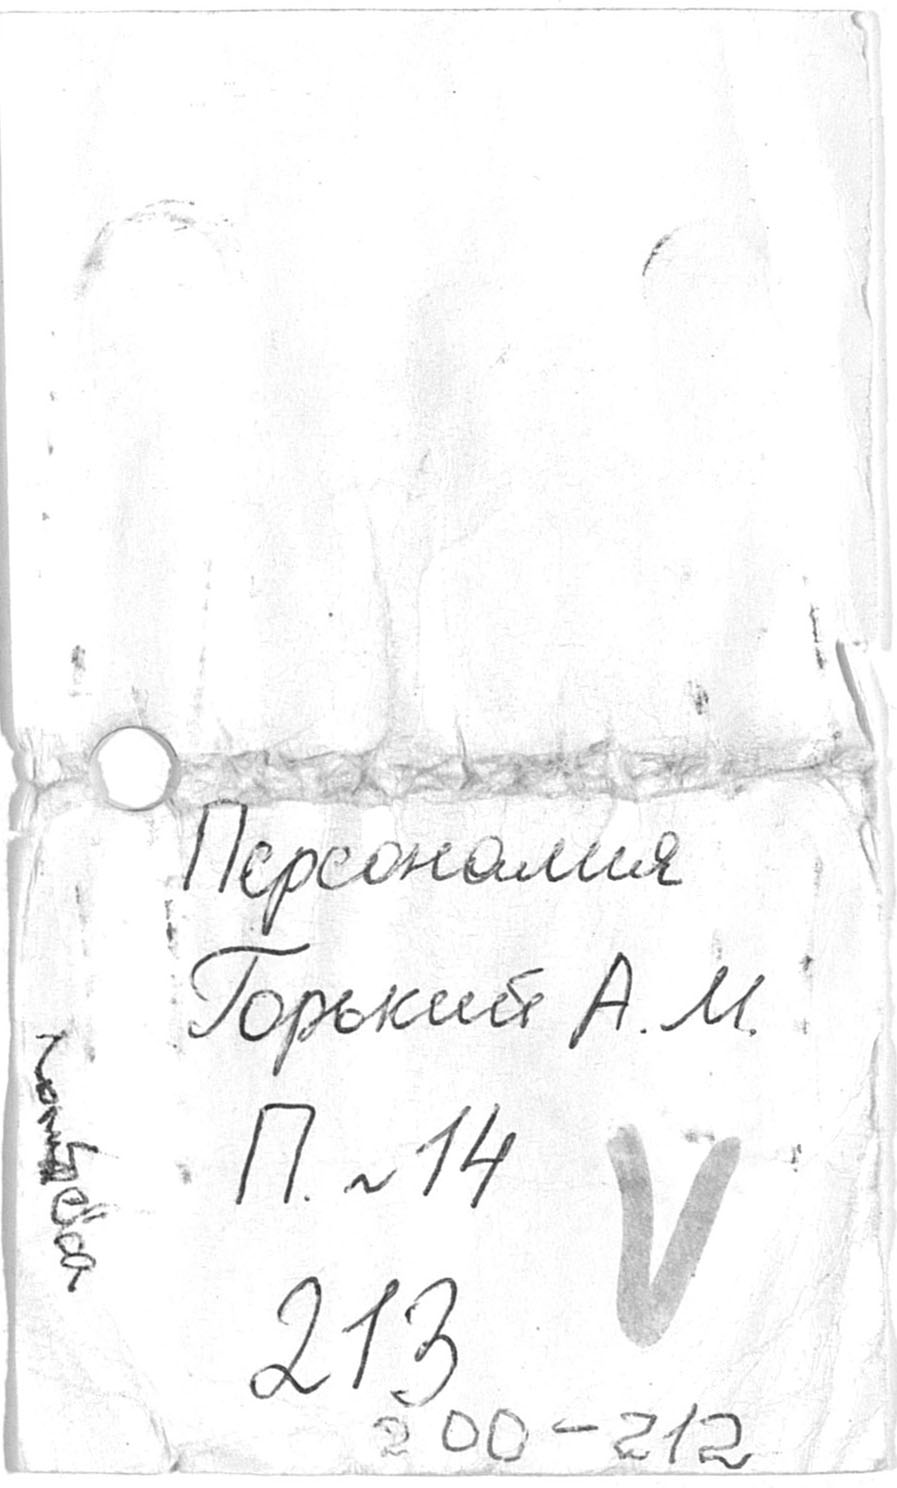 Персоналия
Горький А. М.
П. ~ 14
V
213
200-212